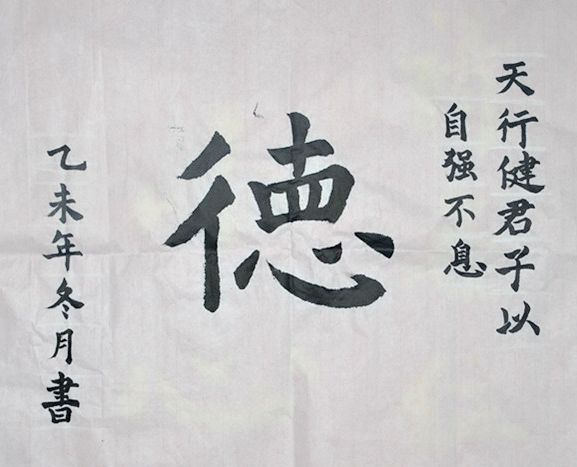 天行健君子以
自强不息
徳
乙未年冬月書